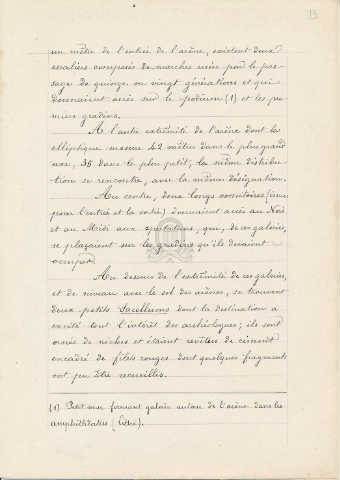 13
un mètre de l'entrée de l'arène, existent deux
escaliers composés de marches usées par le pas-
sage de quinze ou vingt générations et qui
donnaient accès sur le podium (1) et les pre-
miers gradins.
A l'autre extrêmité de l'arène dont la
elliptique mesure 42 mètres dans le plus grand
axe, 36 dans le plus petit, la même distribu-
tion se rencontre, avec la même désignation.
Au centre, deux longs vomitoires
pour l'entrée et la sortie) donnaient accès au Nord
et au Midi aux spectateurs, qui, de ces galeries,
se plaçaient sur les gradins qu'ils devaient
occuper.
Au dessus de l'extrêmité de ces galeries,
et de niveau avec le sol des arènes, se trouvent
deux petits Sacellums dont la destination a
excité tout l'intérêt des archéologues; ils sont
ornés de niches et étaient revêtus de ciment
encadré de filets rouges dont quelques fragments
ont pu être recueillis.
(1) Petit mur formant galerie autour de l'arène dans les
amphithéâtres (Littré).